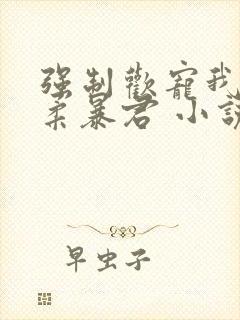 强制歡寵我
柔暴君 小說
早虫子